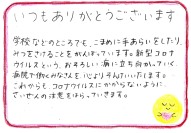 いつもありがとうございます
学校などのところでも、こまめに手あらいをしたり、
みつをさけることをがんばっています。新型コロナ
ウイルスという、おそろしい病に立ち向かっていく、
病院で働くみなさんを、心よりそんけいいたします。
これからも、コロナウイルスにかからないように、
さいぜんの注意をはらっていきます。